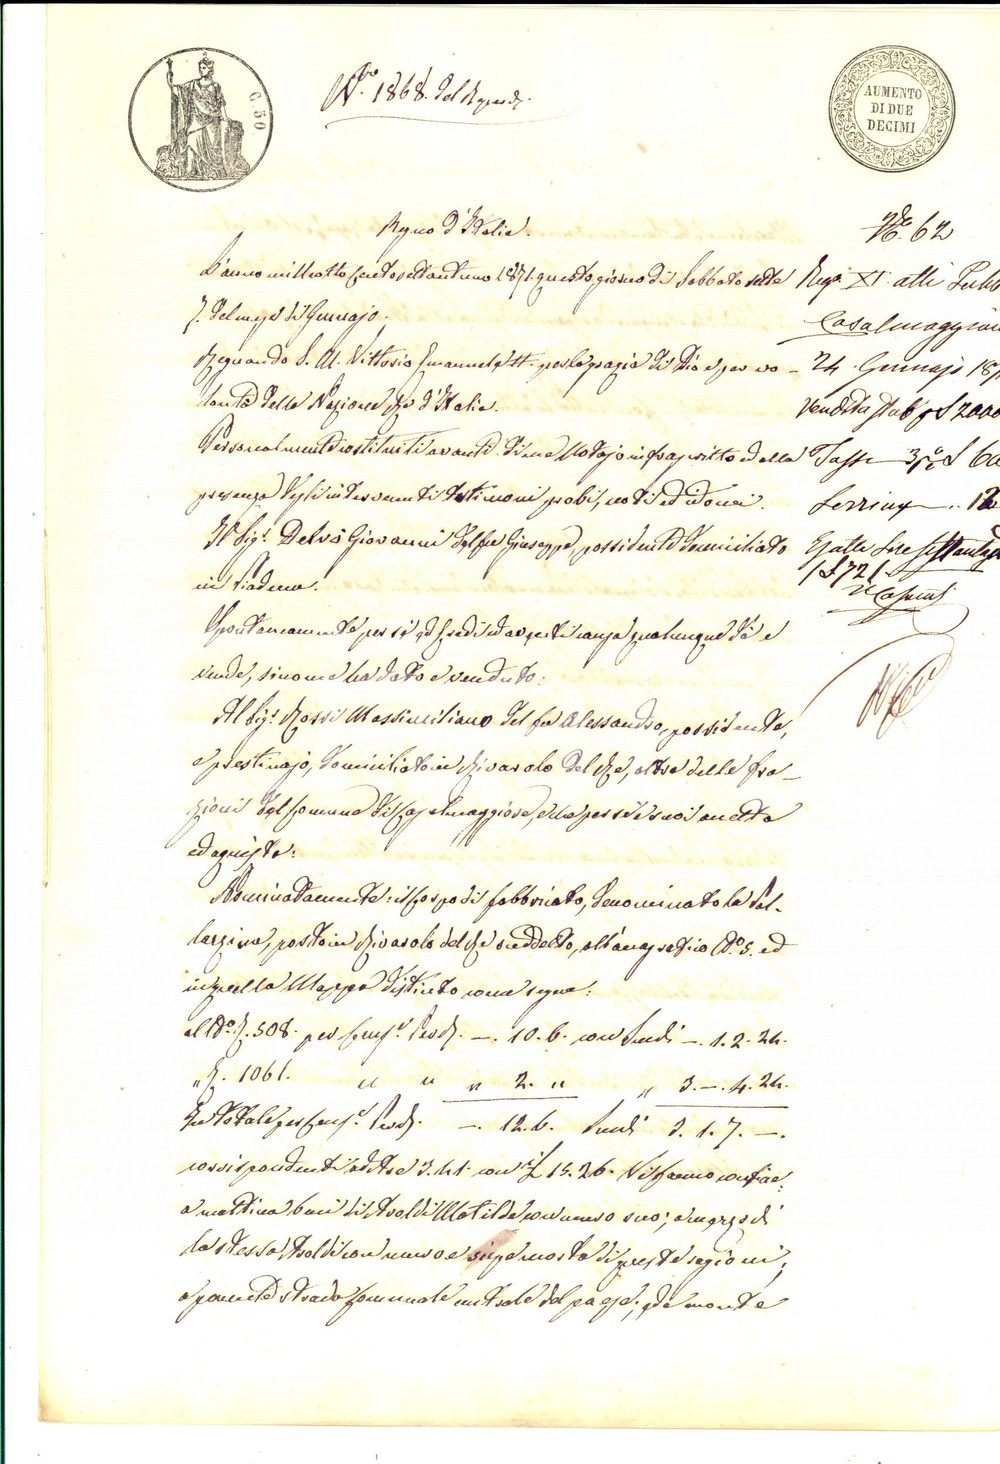 C. 50
N.ro 1868. del Repert.
AUMENTO
DI DUE
DECIMI
Regno d'Italia.
L'anno mille otto cento settant'uno 1871. questo giorno di Sabbato sette
7. del mese di Gennajo.
Regnando S. M. Vittorio Emanuele II. per la grazia di Dio e per vo-
lontà della Nazione Re d'Italia.
Personalmente costituiti avanti di me Notajo infrascritto ed alla
presenza degli intervenuti testimonj probi, noti ed idonei.
Il Sig.r Delvò Giovanni del fu Giuseppe, possidente domiciliato
in Piadena.
Spontaneamente per sè ed Eredi ed aventi causa qualunque dà e
vende, siccome ha dato e venduto:
Al Sig.r Rossi Massimiliano del fu Alessandro, possidente,
e prestinajo, domiciliato in Rivarolo del Re, altra delle fra-
zioni del Comune di Casalmaggiore, che per sè e suoi accetta
ed acquista:
Nominatamente: il corpo di fabbricato, denominato la Pal-
lazzina, posto in Rivarolo del Re suddetto, all'anagrafico N.o 5. ed
in quella Mappa distinto come segue:
al N.o 508. per Cens.e Pert. —. 10. 6. con Scudi —. 1. 2. 24.
" 1061. " " " 2. " " 3. —. 4. 24.
In totale per Cens.e Pert. —. 12. 6. Scudi 3. 1. 7. —.
corrispondenti ad itse 3.41 con £ 15. 26. Vi fanno confine:
a mattina beni di Araldi Matilde con muro suo; a mezzodì
la stessa Araldi con muro e siepe morta di queste ragioni;
a ponente strada Comunale entrale del paese; ed a monte
N.o 62
Reg.o XI. atti Pubb
Casalmaggiore
24 Gennajo 187
Vendita Stab. p £ 2000
Tassa 3 % £ 60
Esatte lire settantadue
/£ 72/